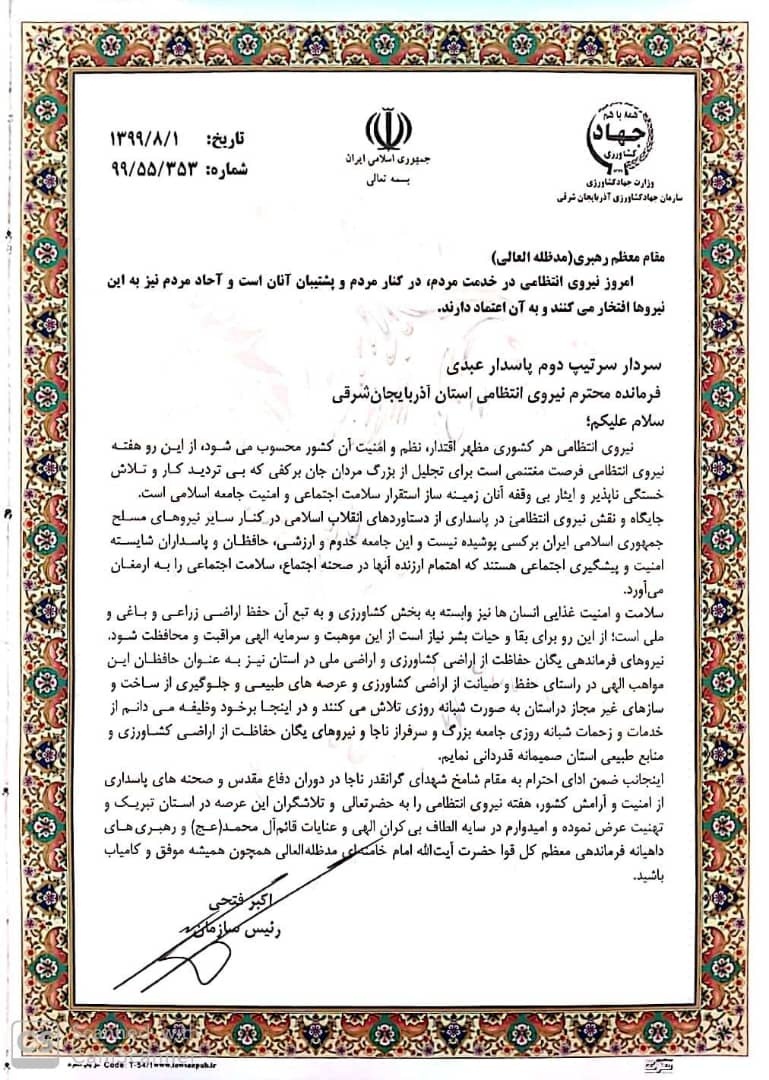 همه با هم
جهاد
کشاورزی
وزارت جهادکشاورزی
سازمان جهادکشاورزی آذربایجان شرقی
جمهوری اسلامی ایران
بسمه تعالی
تاریخ: ۱۳۹۹/۸/۱
شماره: ۹۹/۵۵/۳۵۳
مقام معظم رهبری(مدظله العالی)
امروز نیروی انتظامی در خدمت مردم، در کنار مردم و پشتیبان آنان است و آحاد مردم نیز به این
نیروها افتخار می کنند و به آن اعتماد دارند.
سردار سرتیپ دوم پاسدار عبدی
فرمانده محترم نیروی انتظامی استان آذربایجان‌شرقی
سلام علیکم؛
نیروی انتظامی هر کشوری مظهر اقتدار، نظم و امنیت آن کشور محسوب می شود، از این رو هفته
نیروی انتظامی فرصت مغتنمی است برای تجلیل از بزرگ مردان جان برکفی که بی تردید کار و تلاش
خستگی ناپذیر و ایثار بی وقفه آنان زمینه ساز استقرار سلامت اجتماعی و امنیت جامعه اسلامی است.
جایگاه و نقش نیروی انتظامی در پاسداری از دستاوردهای انقلاب اسلامی در کنار سایر نیروهای مسلح
جمهوری اسلامی ایران برکسی پوشیده نیست و این جامعه خدوم و ارزشی، حافظان و پاسداران شایسته
امنیت و پیشگیری اجتماعی هستند که اهتمام ارزنده آنها در صحنه اجتماع، سلامت اجتماعی را به ارمغان
می‌آورد.
سلامت و امنیت غذایی انسان ها نیز وابسته به بخش کشاورزی و به تبع آن حفظ اراضی زراعی و باغی و
ملی است؛ از این رو برای بقا و حیات بشر نیاز است از این موهبت و سرمایه الهی مراقبت و محافظت شود.
نیروهای فرماندهی یگان حفاظت از اراضی کشاورزی و اراضی ملی در استان نیز به عنوان حافظان این
مواهب الهی در راستای حفظ و صیانت از اراضی کشاورزی و عرصه های طبیعی و جلوگیری از ساخت و
سازهای غیر مجاز دراستان به صورت شبانه روزی تلاش می کنند و در اینجا برخود وظیفه می دانم از
خدمات و زحمات شبانه روزی جامعه بزرگ و سرفراز ناجا و نیروهای یگان حفاظت از اراضی کشاورزی و
منابع طبیعی استان صمیمانه قدردانی نمایم.
اینجانب ضمن ادای احترام به مقام شامخ شهدای گرانقدر ناجا در دوران دفاع مقدس و صحنه های پاسداری
از امنیت و آرامش کشور، هفته نیروی انتظامی را به حضرتعالی و تلاشگران این عرصه در استان تبریک و
تهنیت عرض نموده و امیدوارم در سایه الطاف بی کران الهی و عنایات قائم‌آل محمد(عج) و رهبری های
داهیانه فرماندهی معظم کل قوا حضرت آیت‌الله امام خامنه‌ای مدظله‌العالی همچون همیشه موفق و کامیاب
باشید.
اکبر فتحی
رئیس سازمان
CS Scanned with
CamScanner
Code: T-54/1 www.iowsanpub.ir